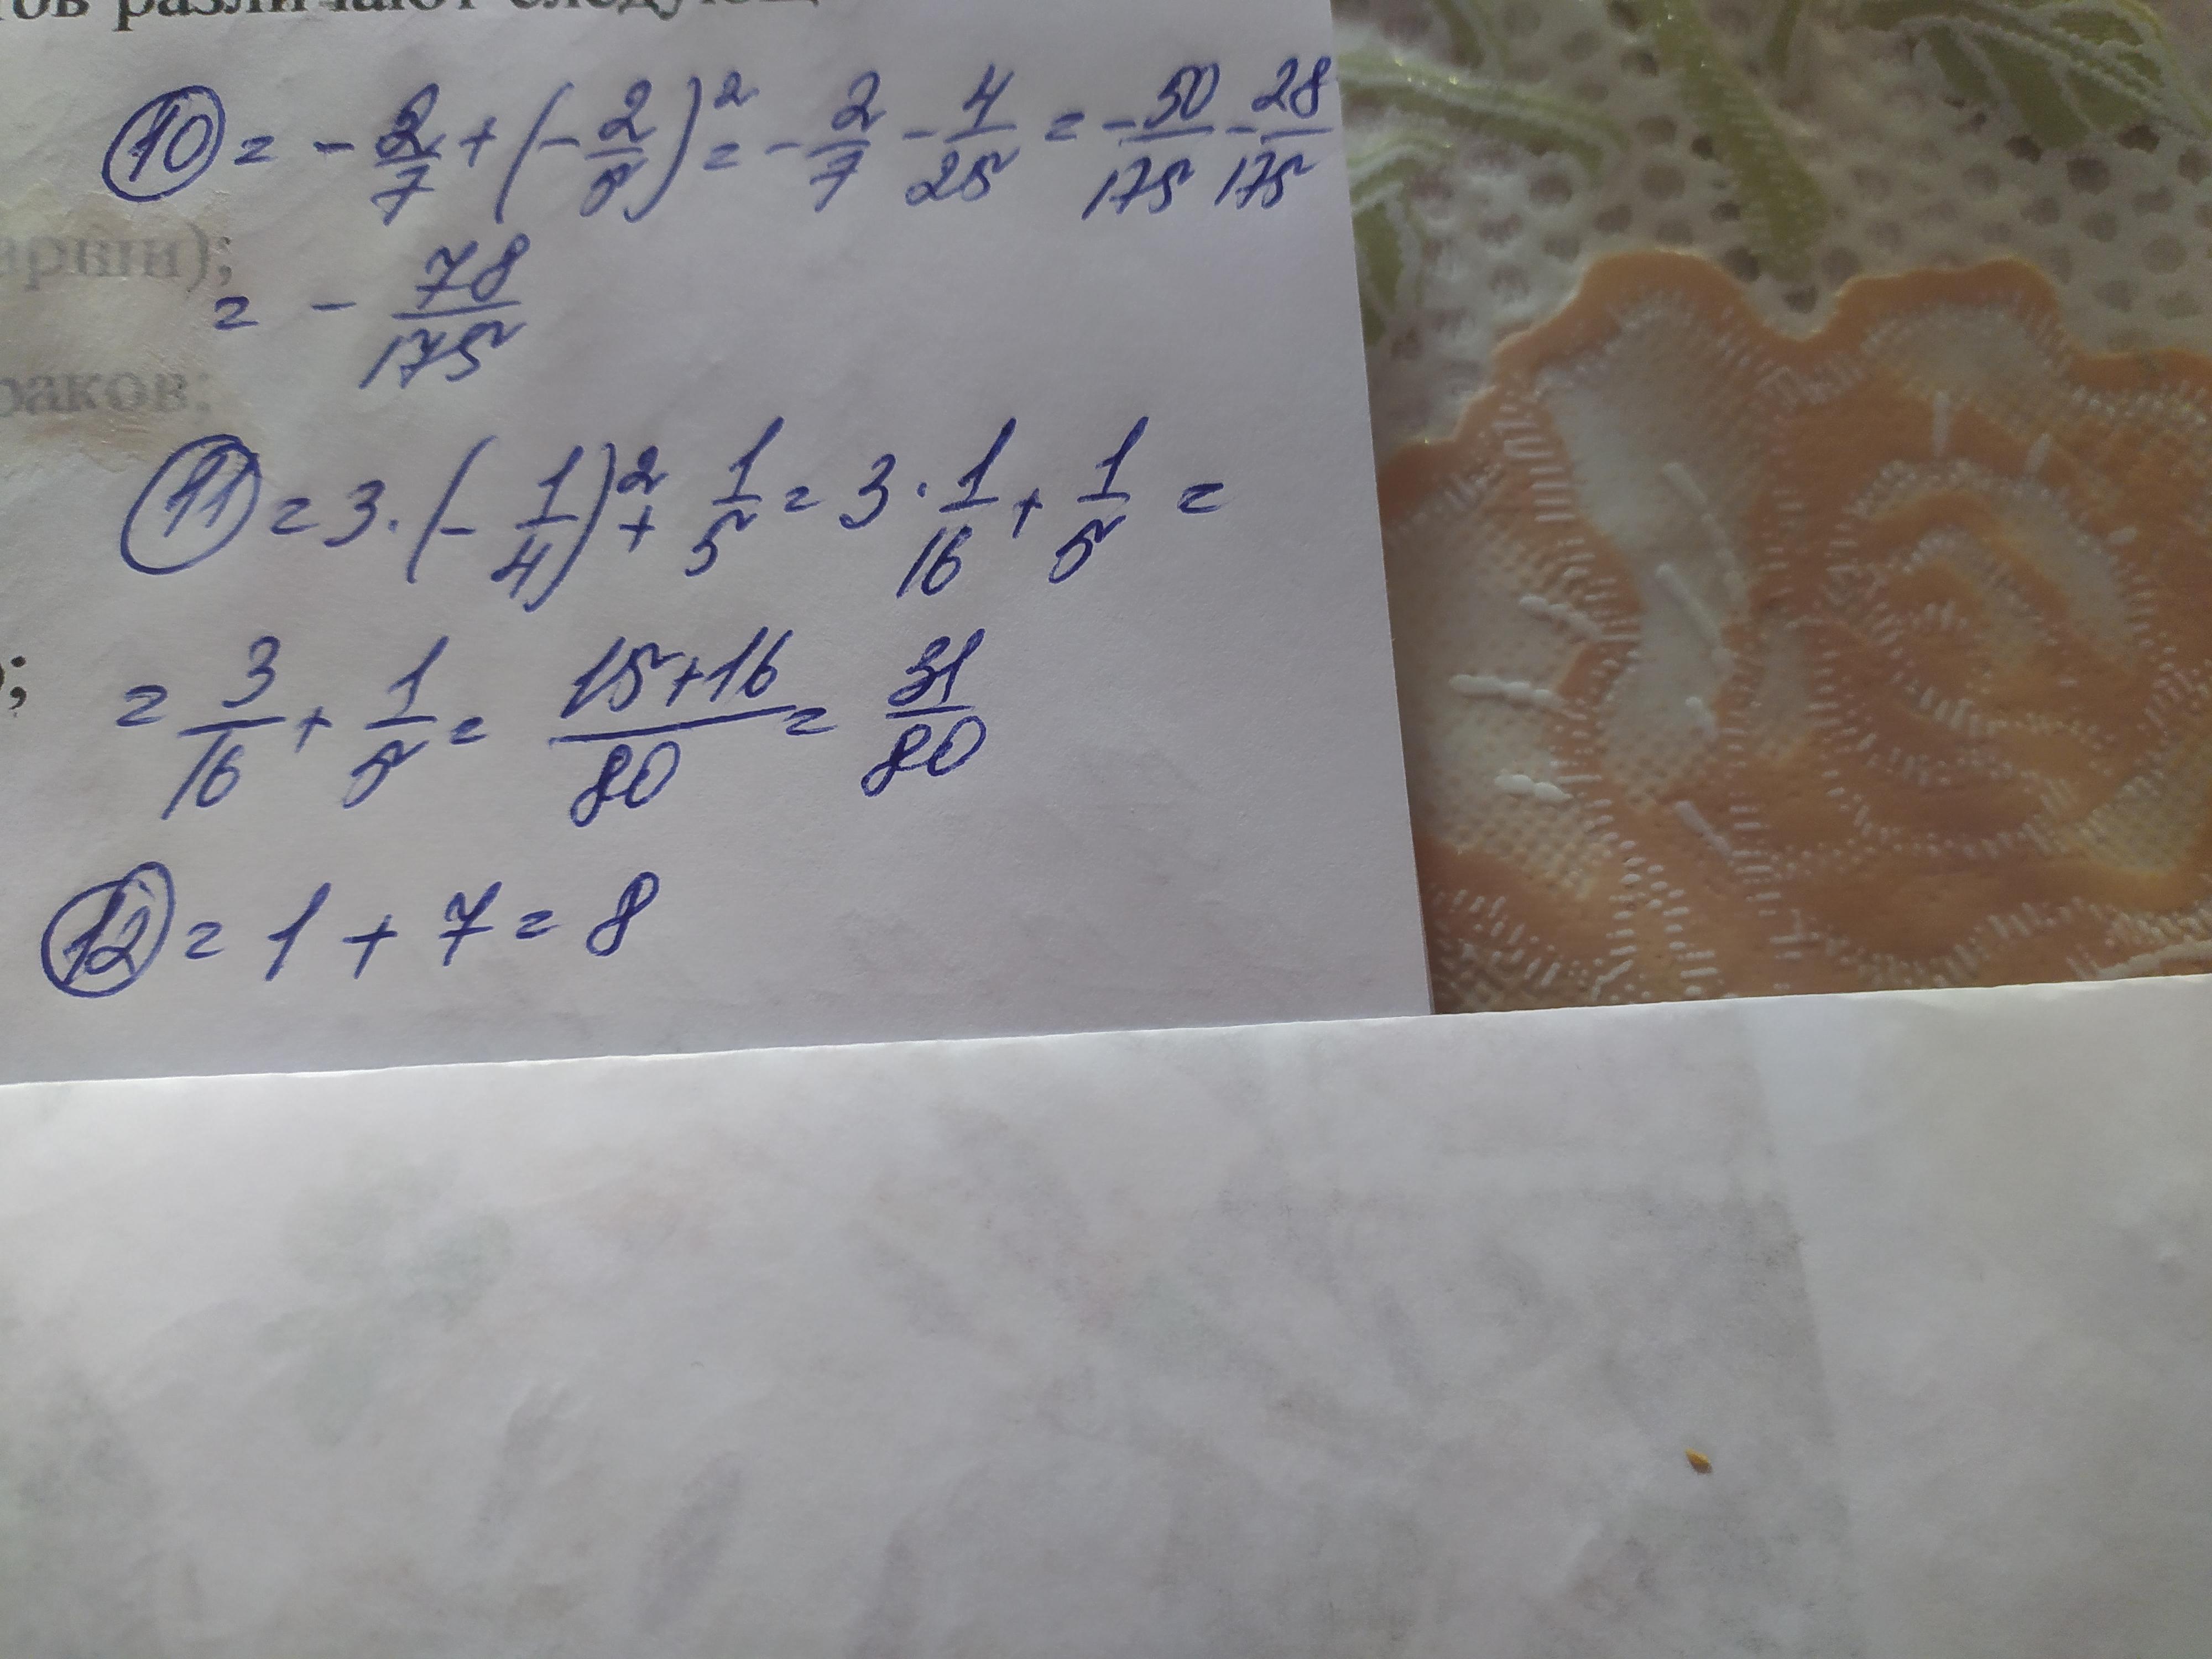 тов различают следующ
10 = - 2/7 + (- 2/5)² = - 2/7 - 4/25 = - 50/175 - 28/175
= - 78/175
11 = 3 · (- 1/4)² + 1/5 = 3 · 1/16 + 1/5 =
= 3/16 + 1/5 = 15+16/80 = 31/80
12 = 1 + 7 = 8